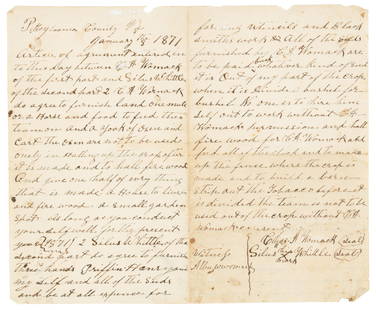 Pittsylvania County Va
January 18 1871
Article of agreement entered in
to this day between C H Womack
of the first part and Silas Whittle
of the second part I C H Womack
do agree to furnish land one mule
or a Horse and food to feed the
team on and a yoke of oxen and
Cart the oxen are not to be used
only in Halling up the crop after
it is made and to hall fire wood
and give one half of every thing
that is made a House to live in
and fire wood a small garden
spot as long as you conduct
your self well for the present
year 1871 I Silas Whittle of the
second part do agree to furnish
three hands Griffin
my self and all of the
and be at all expenses for
farming utensils and Black
smiths work all of the
furnished by C H Womack are
to be paid back whatever kind of
it is out of my part of the crop
when it is divided bushel for
bushel No one is to hire him
self out to work without C H
Womack permission and hall
fire wood for C H Womack and
feed all of the and to make
up the fence where the crop is
made and to build a barn
strip out the Tobacco before it
is divided the team is not to be
used out of the crop without C H
Womack consent
Charles H Womack (seal)
Silas his Whittle (seal)
mark
Witness